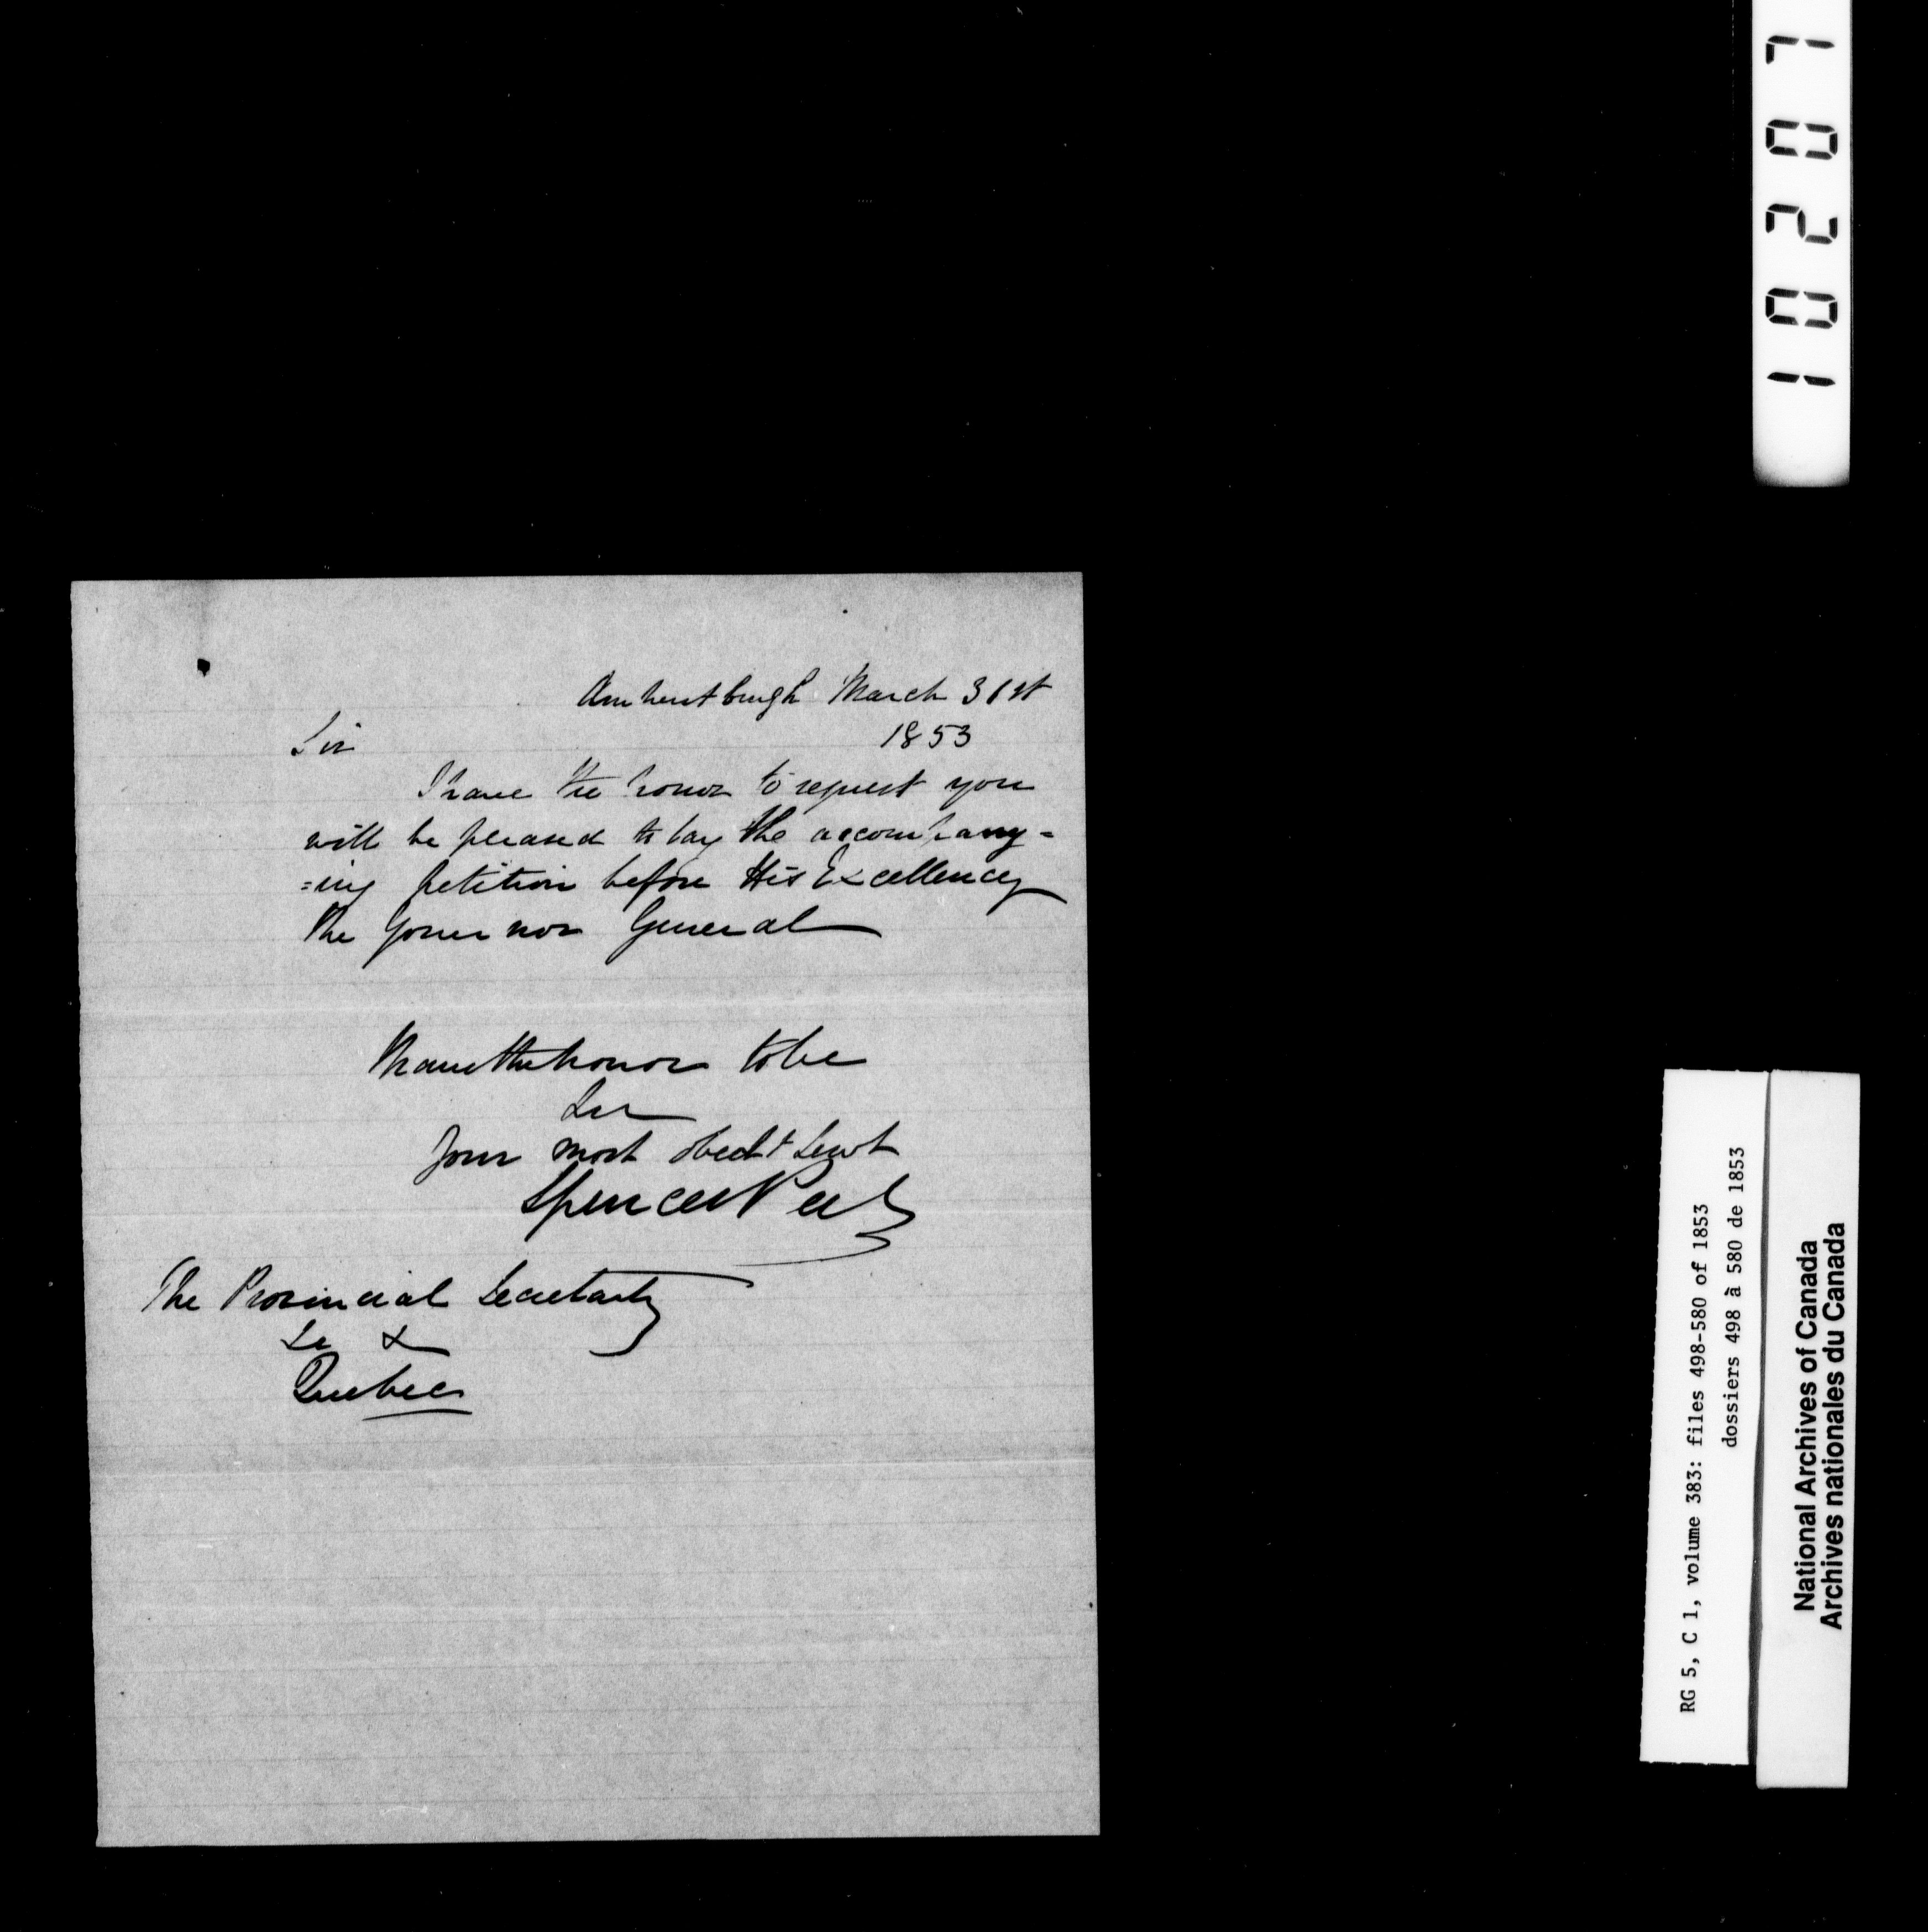 Amherstburgh March 31st
1853
Sir
I have the honor to request you
will be pleased to lay the accompany=
=ing petition before His Excellency
the Governor General
I have the honor to be
Sir
Your most obedt Servt
Spencer
The Provincial Secretary
&c &c
Quebec
10207
RG 5, C 1, volume 383: files 498-580 of 1853
dossiers 498 à 580 de 1853
National Archives of Canada
Archives nationales du Canada